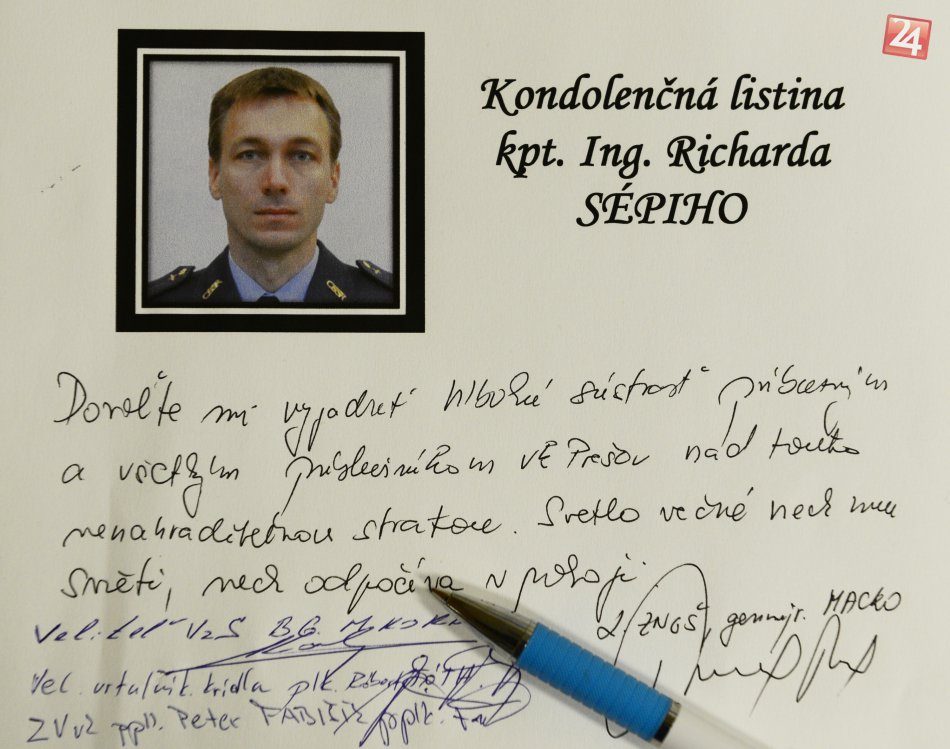 24
Kondolenčná listina
kpt. Ing. Richarda
SÉPIHO
Dovoľte mi vyjadriť hlbokú sústrasť príbuzným
a všetkým príslušníkom VK Prešov nad touto
nenahraditeľnou stratou. Svetlo večné nech mu
svieti, nech odpočíva v pokoji.
ZNGŠ, genmjr. MACKO
Veliteľ VzS B.G.
Vel. vrtuľník. krídla plk. Róbert
ZVvK pplk. Peter FABIŠÍK pplk.